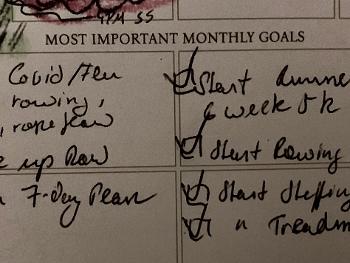 4PM SS
MOST IMPORTANT MONTHLY GOALS
Covid/Flu
rowing,
up Row
7-day Plan
Start Runner
6 week 5k
Start Rowing
Start
n Treadm